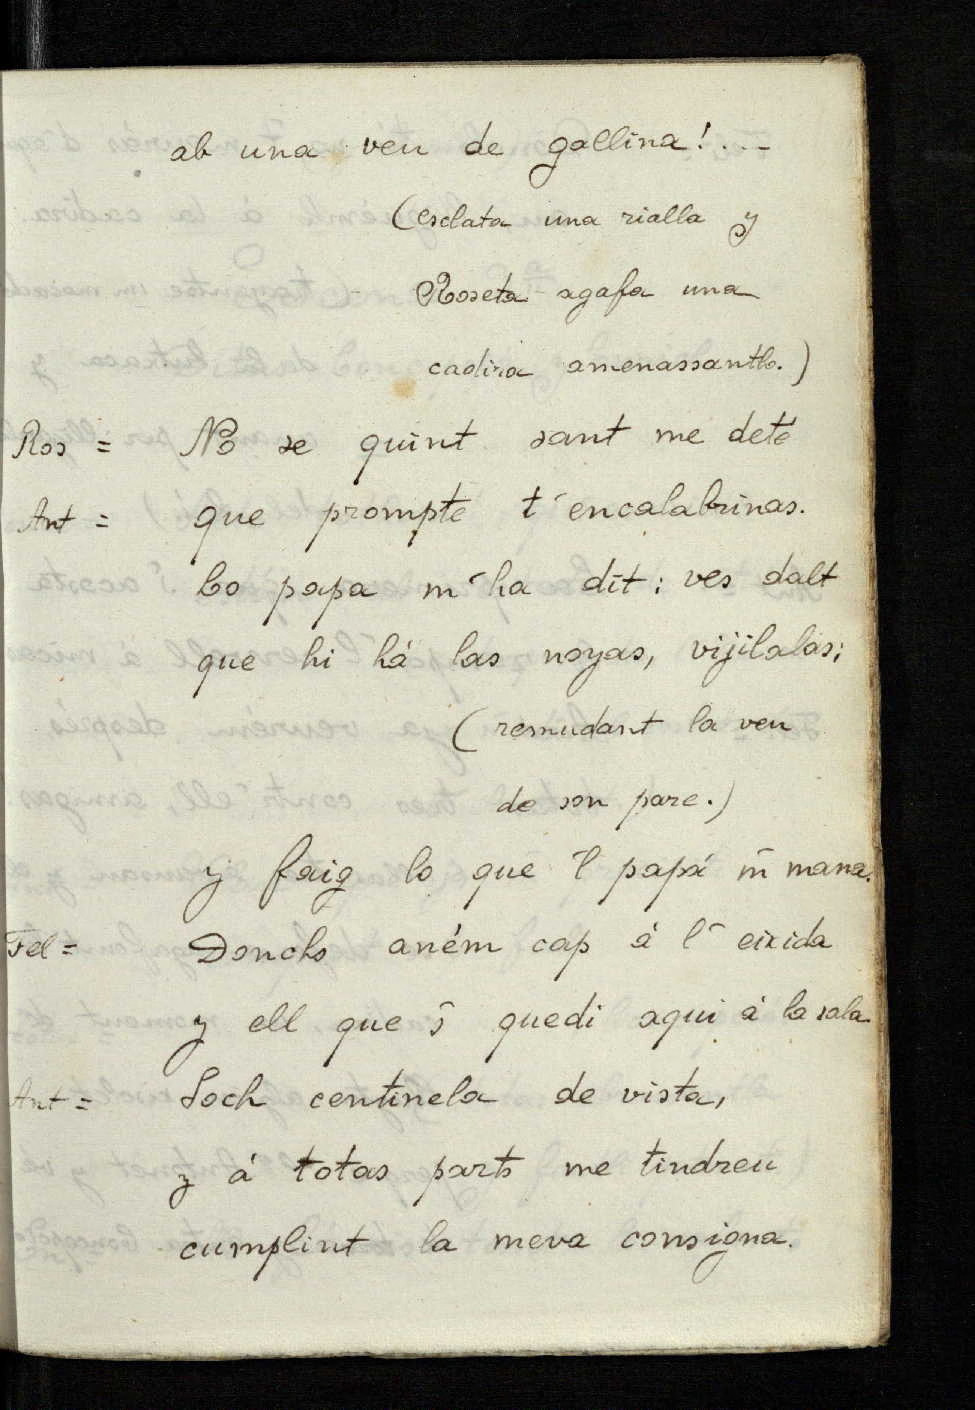 ab una veu de gallina!...
(esclata una rialla y
Roseta agafa una
cadira amenassantlo.)
Ros = No se quint sant me deté
Ant = que prompte t´encalabrinas.
Lo papa m´ha dit: ves dalt
que hi há las noyas, vijilalas;
(remudant la veu
de son pare.)
y faig lo que ´l papá m´ mana.
Fel = Donchs aném cap á l´ eixida
y ell que ´s quedi aqui á la sala.
Ant = Soch centinela de vista,
y á totas parts me tindreu
cumplint la meva consigna.